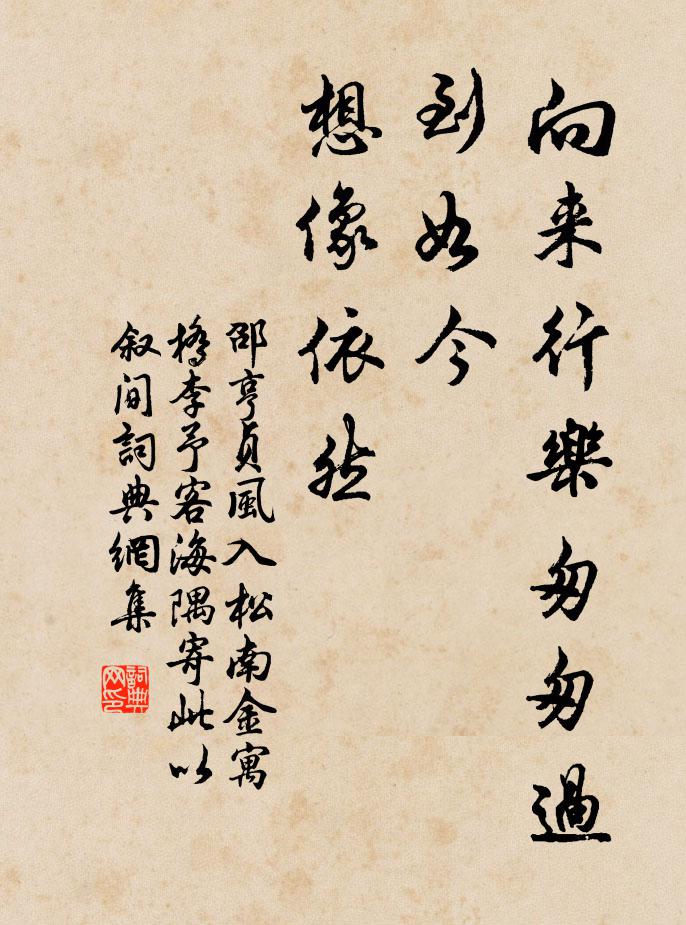 向来行樂匆匆過
到如今
想像依然
邵亨貞風入松南金寓
橋李予客海隅寄此以
叙间詞典網集
詞典网印